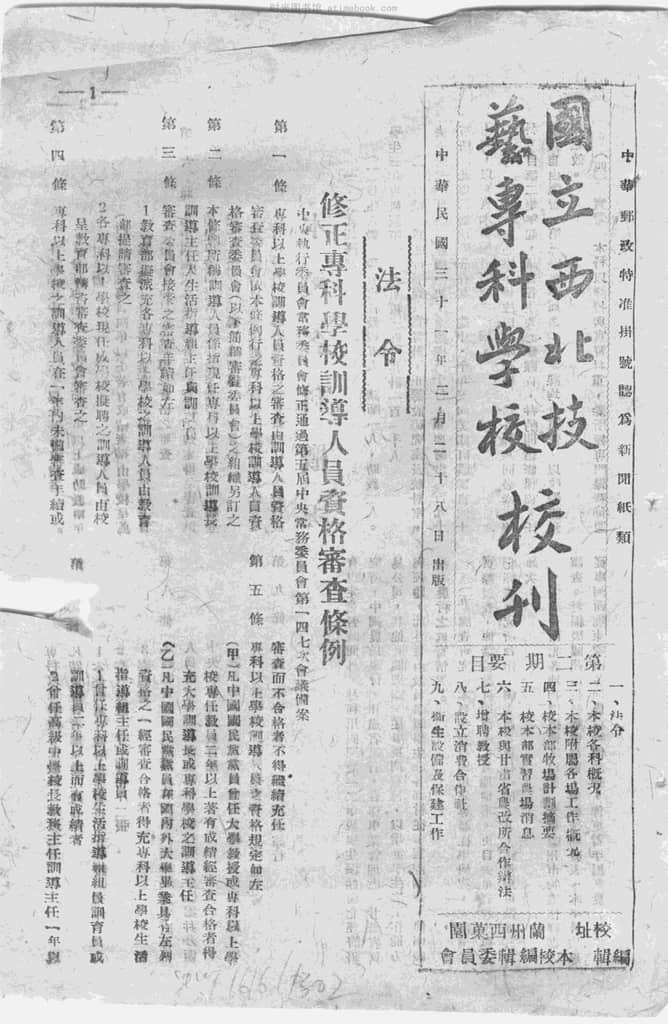 时光图书馆 atimebook.com
中華郵政特准掛號認爲新聞紙類
國立西北技
藝專科學校
校刊
中華民國三十一年二月二十八日出版
第二期要目
一、法令
二、本校各科概况
三、本校附屬各場工作概況
四、校本部牧場計劃摘要
五、校本部實習農場消息
六、本校與甘肅省農改所合作辦法
七、增聘教授
八、設立消費合作社
九、衛生設備及保建工作
校址 蘭州西菓園
編輯 本校編輯委員會
法令
修正專科學校訓導人員資格審查條例
中央執行委員會常務委員會修正通過第五屆中央常務委員會第一四七次會議備案
第一條 專科以上學校訓導人員資格之審查由訓導人員資格
審查委員會依本條例行之專科以上學校訓導人員資
格審查委員會(以下簡稱審查委員會)之組織另訂之
第二條 本條例所稱訓導人員係指現任專科以上學校訓導長
訓導主任人生活指導組主任與訓導員
第三條 審查委員會接受之審查手續如左
1教育部擬派充各專科以上學校之訓導人員由教育
部提請審查之
2各專科以上學校現任或學校擬聘之訓導人員由校
呈教育部轉請審查委員會審查之
第四條 專科以上學校之訓導人員在一年內未備審查手續或
審查而不合格者不得繼續充任
第五條 專科以上學校訓導人員之資格規定如左
(甲)凡中國國民黨黨員曾任大學教授或專科以上學
校專任教員二年以上著有成績經審查合格者得
充大學訓導長或專科學校之訓導主任
(乙)凡中國國民黨黨員在國內外大學畢業具有左列
資格之一經審查合格者得充專科以上學校生活
指導組主任或訓導員
1曾任專科以上學校生活指導組組員訓育員或
訓導員二年以上而有成績者
2曾任高級中學校長教務主任訓導主任一年以
— 1 —